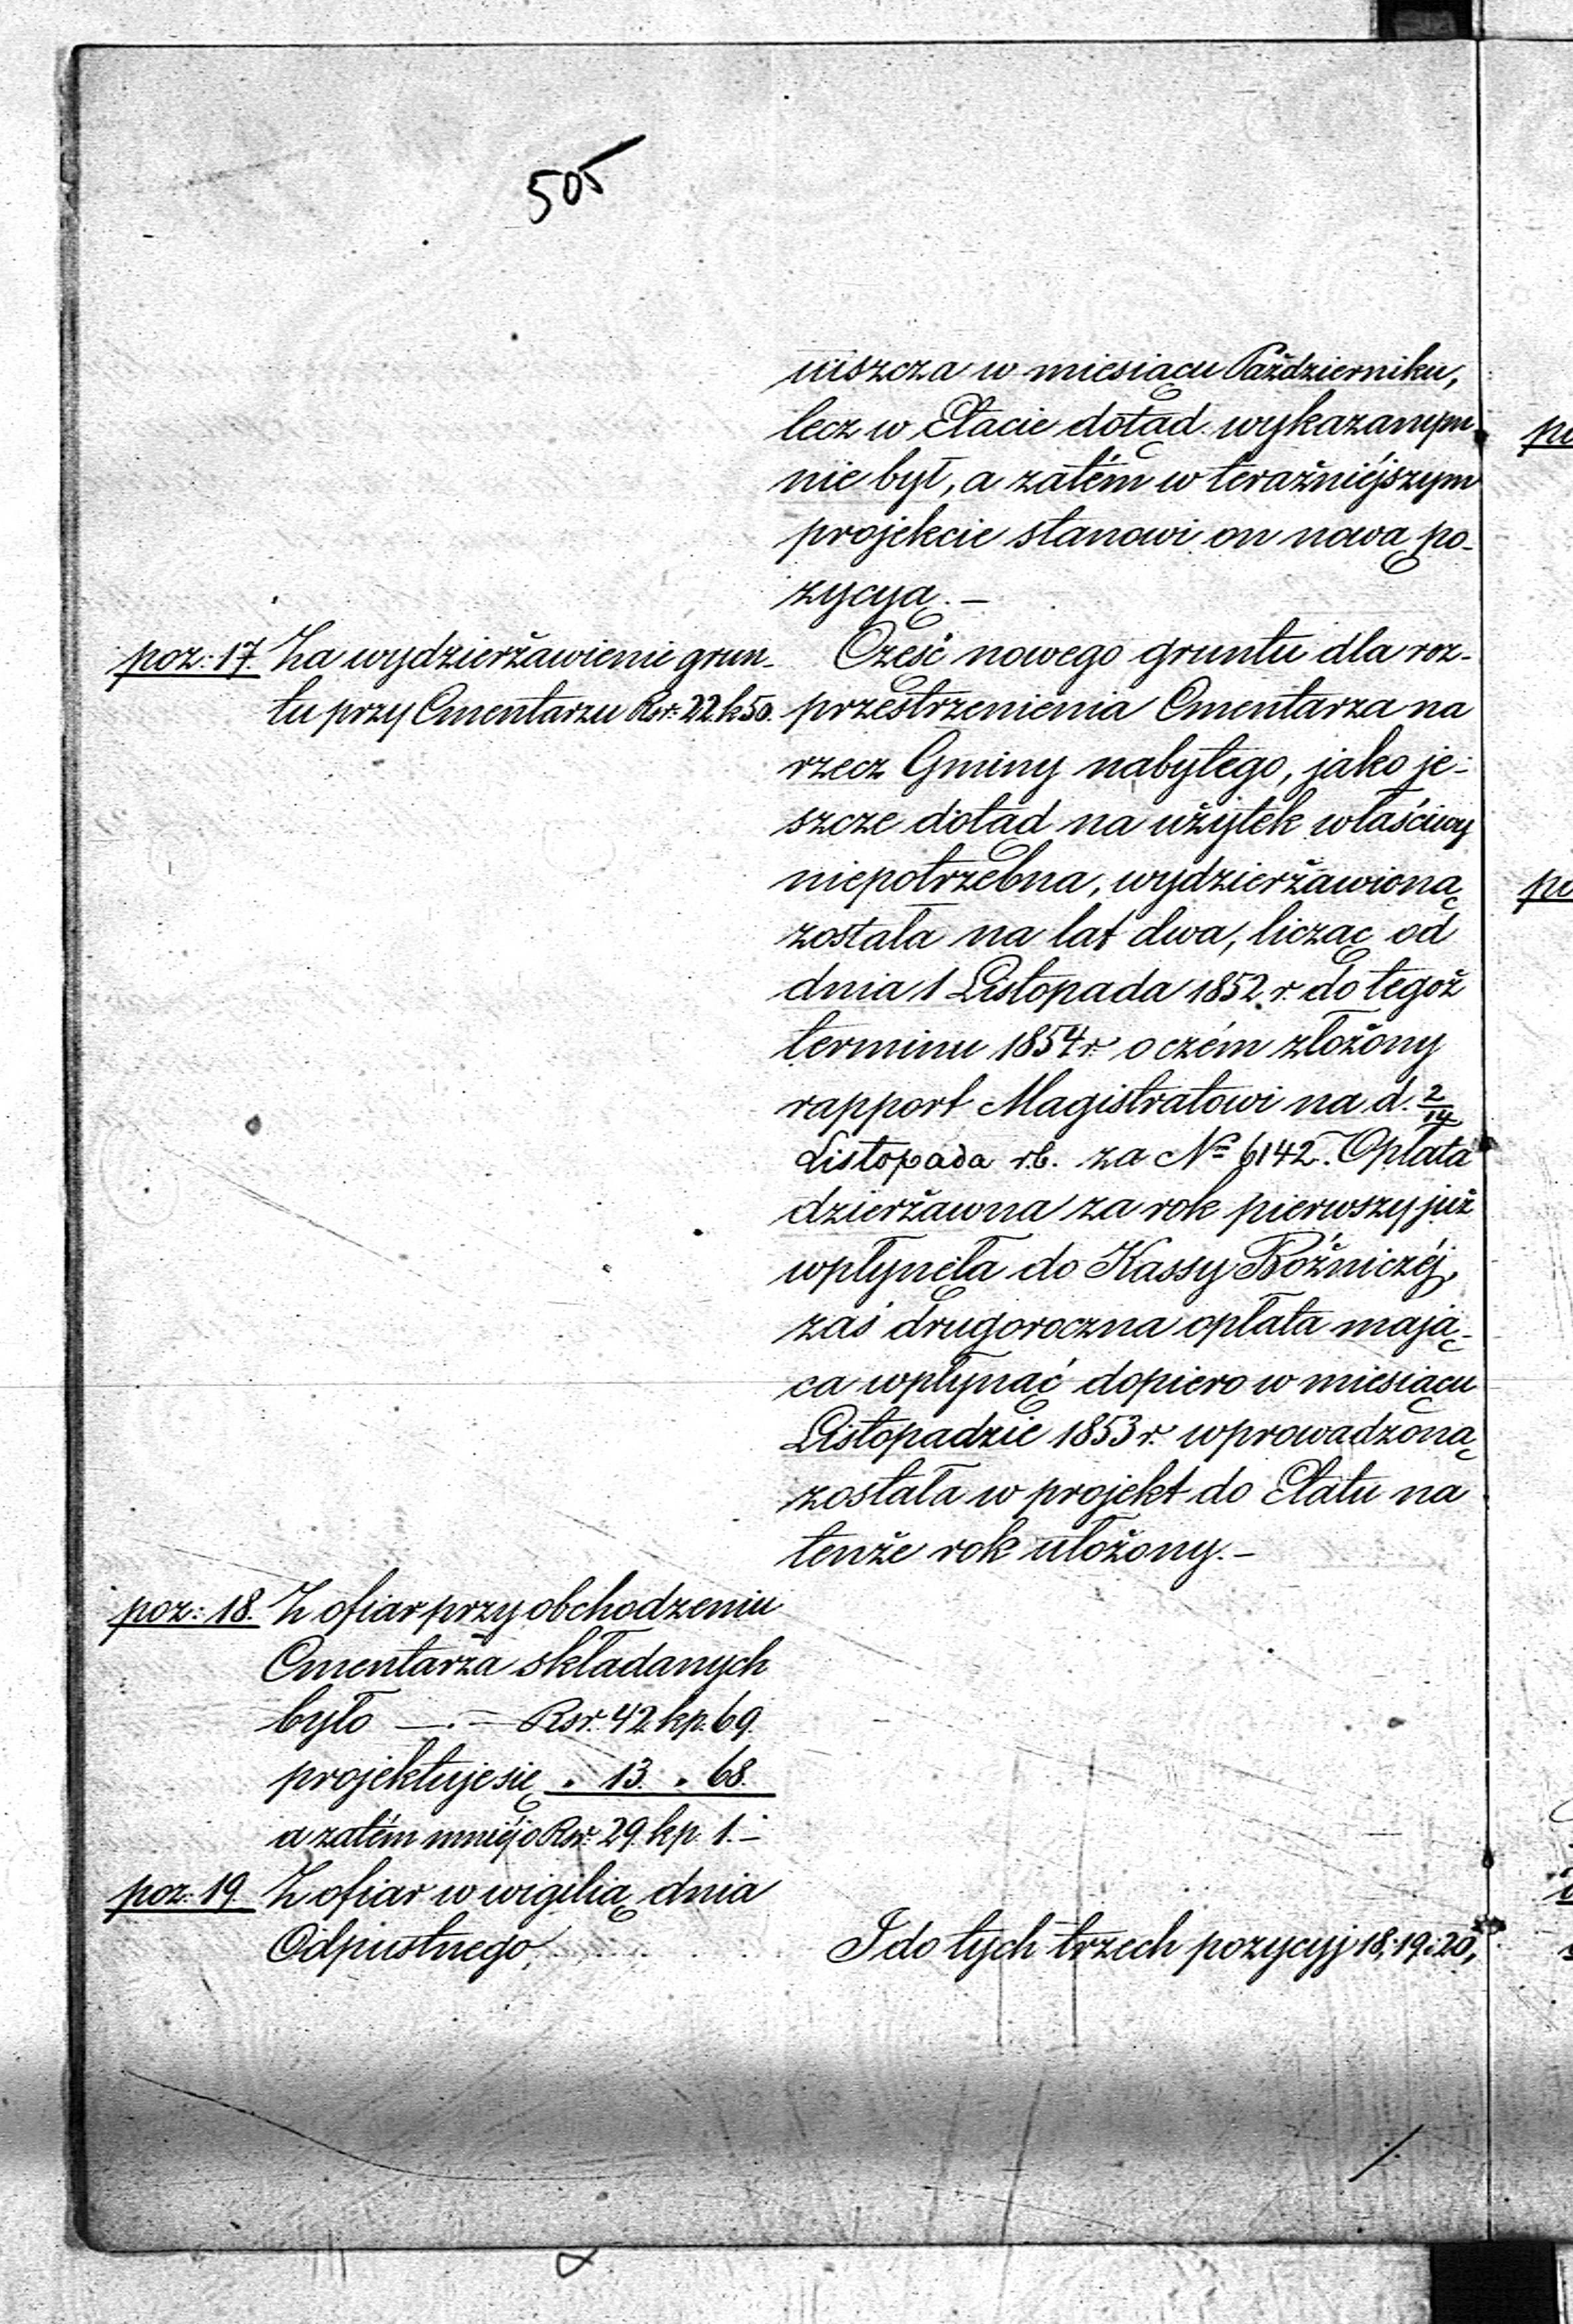 505
uiszcza w miesiącu Październiku,
lecz w Etacie dotąd wykazanym
nie był, a zatém w teraźniéjszym
projekcie stanowi on nową po-
zycyą. —
poz: 17. Za wydzierżawienie grun-
tu przy Cmentarzu Rsr. 22. k 50.
Część nowego gruntu dla roz-
przestrzenienia Cmentarza na
rzecz Gminy nabytego, jako je-
szcze dotąd na użytek właściwy
niepotrzebna, wydzierżawioną
została na lat dwa, licząc od
dnia 1 Listopada 1852 r. do tegoż
terminu 1854 r. o czém złożony
rapport Magistratowi na d. 2/14
Listopada r.b. za № 6142. Opłata
dzierżawna za rok pierwszy już
wpłynęła do Kassy Bóżniczéj,
zaś drugoroczna opłata mają-
ca wpłynąć dopiero w miesiącu
Listopadzie 1853 r. wprowadzoną
została w projekt do Etatu na
tenże rok ułożony. —
poz: 18. Z ofiar przy obchodzeniu
Cmentarza składanych
było —.— Rsr. 42. kp. 69.
projektuje się „ 13. „ 68.
a zatém mniéj o Rsr. 29. kp. 1. —
poz: 19. Z ofiar w wigilią dnia
Odpustnego
I do tych trzech pozycyj 18, 19 i 20,